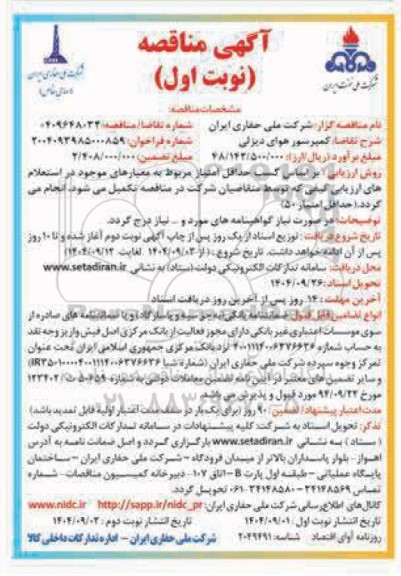 آگهی مناقصه
(نوبت اول)
شرکت ملی نفت ایران
شرکت ملی حفاری ایران
(سهامی خاص)
مشخصات مناقصه:
نام مناقصه گزار: شرکت ملی حفاری ایران شماره تقاضا/مناقصه: ۰۴۰۹۶۴۸۰۳۳
شرح تقاضا: کمپرسور هوای دیزلی شماره فراخوان: ۲۰۰۴۰۹۳۹۸۵۰۰۰۸۵۹
مبلغ برآورد (ریال/ارز): ۴۸/۱۴۲/۵۰۰/۰۰۰ مبلغ تضمین: ۲/۴۰۸/۰۰۰/۰۰۰
روش ارزیابی: بر اساس کسب حداقل امتیاز مربوط به معیارهای موجود در استعلام
های ارزیابی کیفی که توسط متقاضیان شرکت در مناقصه تکمیل می شود، انجام می
گردد. (حداقل امتیاز ۵۰)
توضیحات: در صورت نیاز گواهینامه های مورد و ... نیاز درج گردد.
تاریخ شروع دریافت: توزیع اسناد از یک روز پس از چاپ آگهی نوبت دوم آغاز شده و تا ۱۰ روز
پس از آن ادامه خواهد داشت. تاریخ شروع: (از ۱۴۰۴/۰۹/۰۳ لغایت ۱۴۰۴/۰۹/۱۲
محل دریافت: سامانه تدارکات الکترونیکی دولت (ستاد) به نشانی www.setadiran.ir
تحویل اسناد: ۱۴۰۴/۰۹/۲۶
آخرین مهلت: ۱۴ روز پس از آخرین روز دریافت اسناد
انواع تضامین قابل قبول: ضمانتنامه بانکی (به جز سپه و پاسارگاد) و یا ضمانتنامه های صادره از
سوی موسسات اعتباری غیر بانکی دارای مجوز فعالیت از بانک مرکزی اصل فیش واریز وجه نقد
به حساب شماره ۴۰۰۱۱۱۴۰۰۶۳۷۶۶۳۶ نزد بانک مرکزی جمهوری اسلامی ایران تحت عنوان
تمرکز وجوه سپرده شرکت ملی حفاری ایران (شماره شبا
و سایر تضمین های معتبر در آیین نامه تضمین معاملات دولتی به شماره ۱۲۳۴۰۲/ت۵۰۶۵۹
مورخ ۹۴/۰۹/۲۲ مورد قبول و پذیرش می باشد.
مدت اعتبار پیشنهاد/تضمین: ۹۰ روز (برای یک بار در سقف مدت اعتبار اولیه قابل تمدید باشد)
تذکر: تحویل اسناد به شرکت: کلیه پیشنهادات در سامانه تدارکات الکترونیکی دولت
(ستاد) به نشانی www.setadiran.ir بارگزاری گردد و اصل ضمانت نامه به آدرس
اهواز - بلوار پاسداران بالاتر از میدان فرودگاه - شرکت ملی حفاری ایران - ساختمان
پایگاه عملیاتی - طبقه اول پارت B - اتاق ۱۰۷ - دبیرخانه کمیسیون مناقصات - شماره
تماس ۳۴۱۴۸۵۶۹ - ۳۴۱۴۸۵۸۰-۰۶۱ تحویل گردد.
کانال های اطلاع رسانی شرکت ملی حفاری ایران: http://sapp.ir/nidc_pr www.nidc.ir
تاریخ انتشار نوبت اول: ۱۴۰۴/۰۹/۰۱ تاریخ انتشار نوبت دوم: ۱۴۰۴/۰۹/۰۲
روزنامه آوای اقتصاد شناسه: ۲۰۴۹۴۹۱ شرکت ملی حفاری ایران - اداره تدارکات داخلی کالا